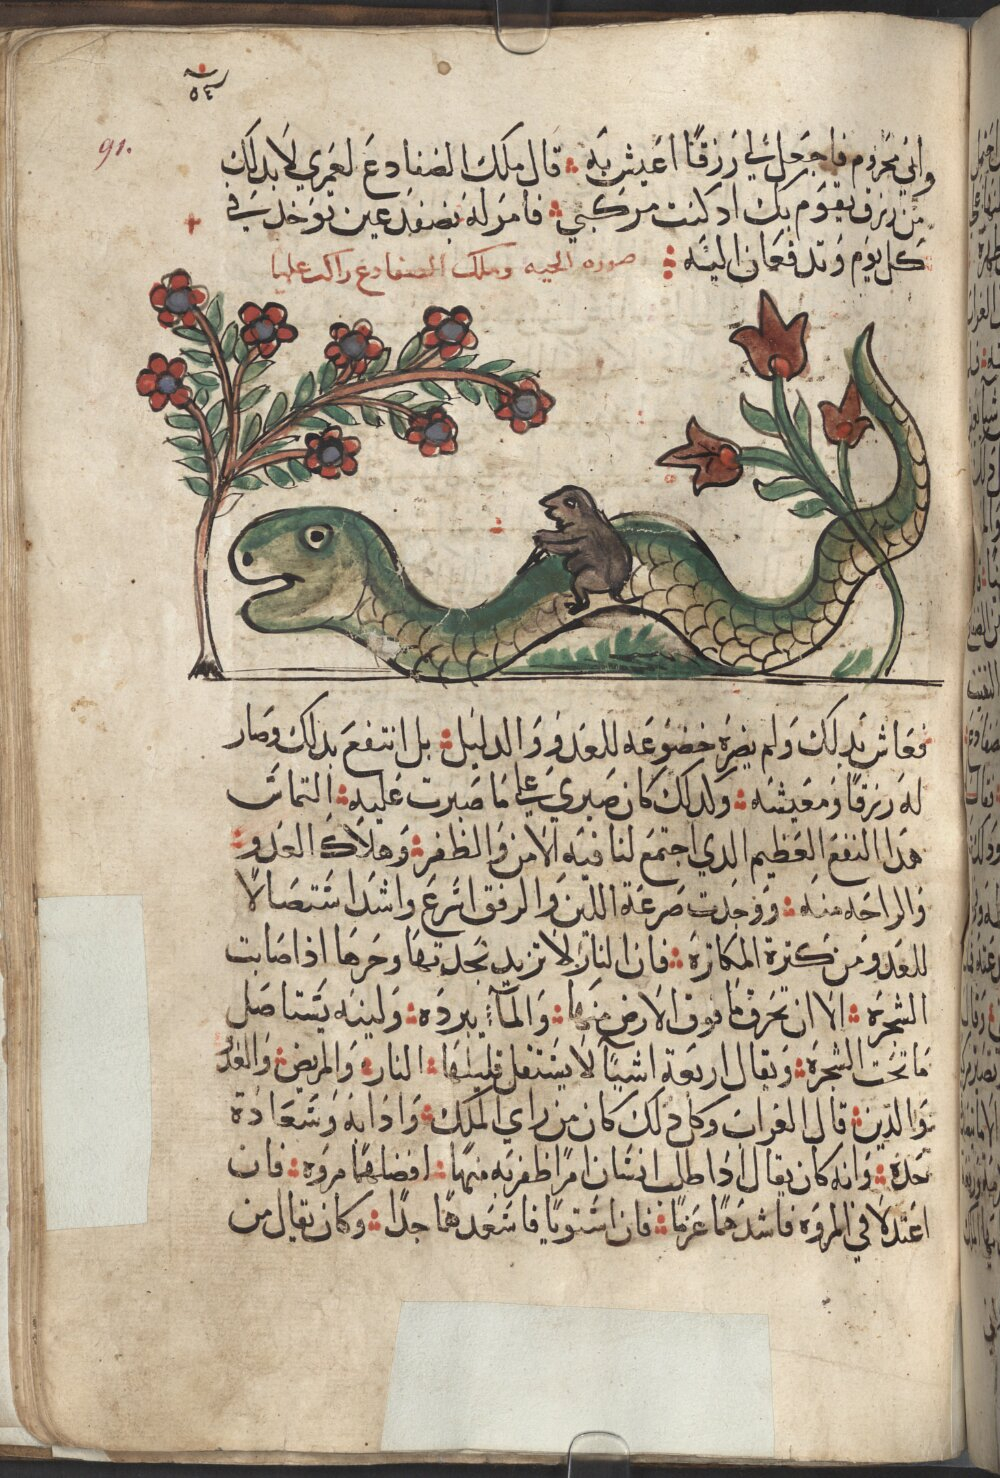 ٥٤
91.
واني محروم فاجعل لي رزقًا اعيش به ؞ قال ملك الضفادع لعمري لا بد لك
من رزق يقوم بك اد كنت مركبي ؞ فامر له بضفدعين توخد في
كل يوم وتدفعان اليه ؞
صوره الحيه وملك الضفادع راكب عليها
فعاش بدلك ولم يضره خضوعه للعدو والدليل ؞ بل انتفع بدلك وصار
له رزقًا ومعيشه ؞ وكدلك كان صبري علي ما صبرت عليه ؞ التماس
هدا النفع العظيم الدي اجتمع لنا فيه الامن والظفر ؞ وهلاك العدو ؞
والراحه منه ؞ ووجدت صرعة اللين والرفق اسرع واشد استصالا
للعدو من كترة المكابرة ؞ فان النار لا تزيد بحدتها وحرها ادا صابت
الشجرة ؞ الا ان تحرق ما فوق الارض منها ؞ والمآ ببرده ؞ ولينه يستاصل
ما تحت الشجرة ؞ ويقال اربعة اشيآ لا يستقل قليلها ؞ النار ؞ والمريض ؞ والعدو
والدين ؞ قال الغراب وكل دلك كان من راي الملك ؞ وادابه وسعادة
جده ؞ وانه كان يقال ادا طلب اتنان امرًا ظفر به منهما ؞ افضلهما مروه ؞ فان
اعتدلا في المروه فاشدهما عزمًا ؞ فان استويا فاسعدهما جدًا ؞ وكان يقال من